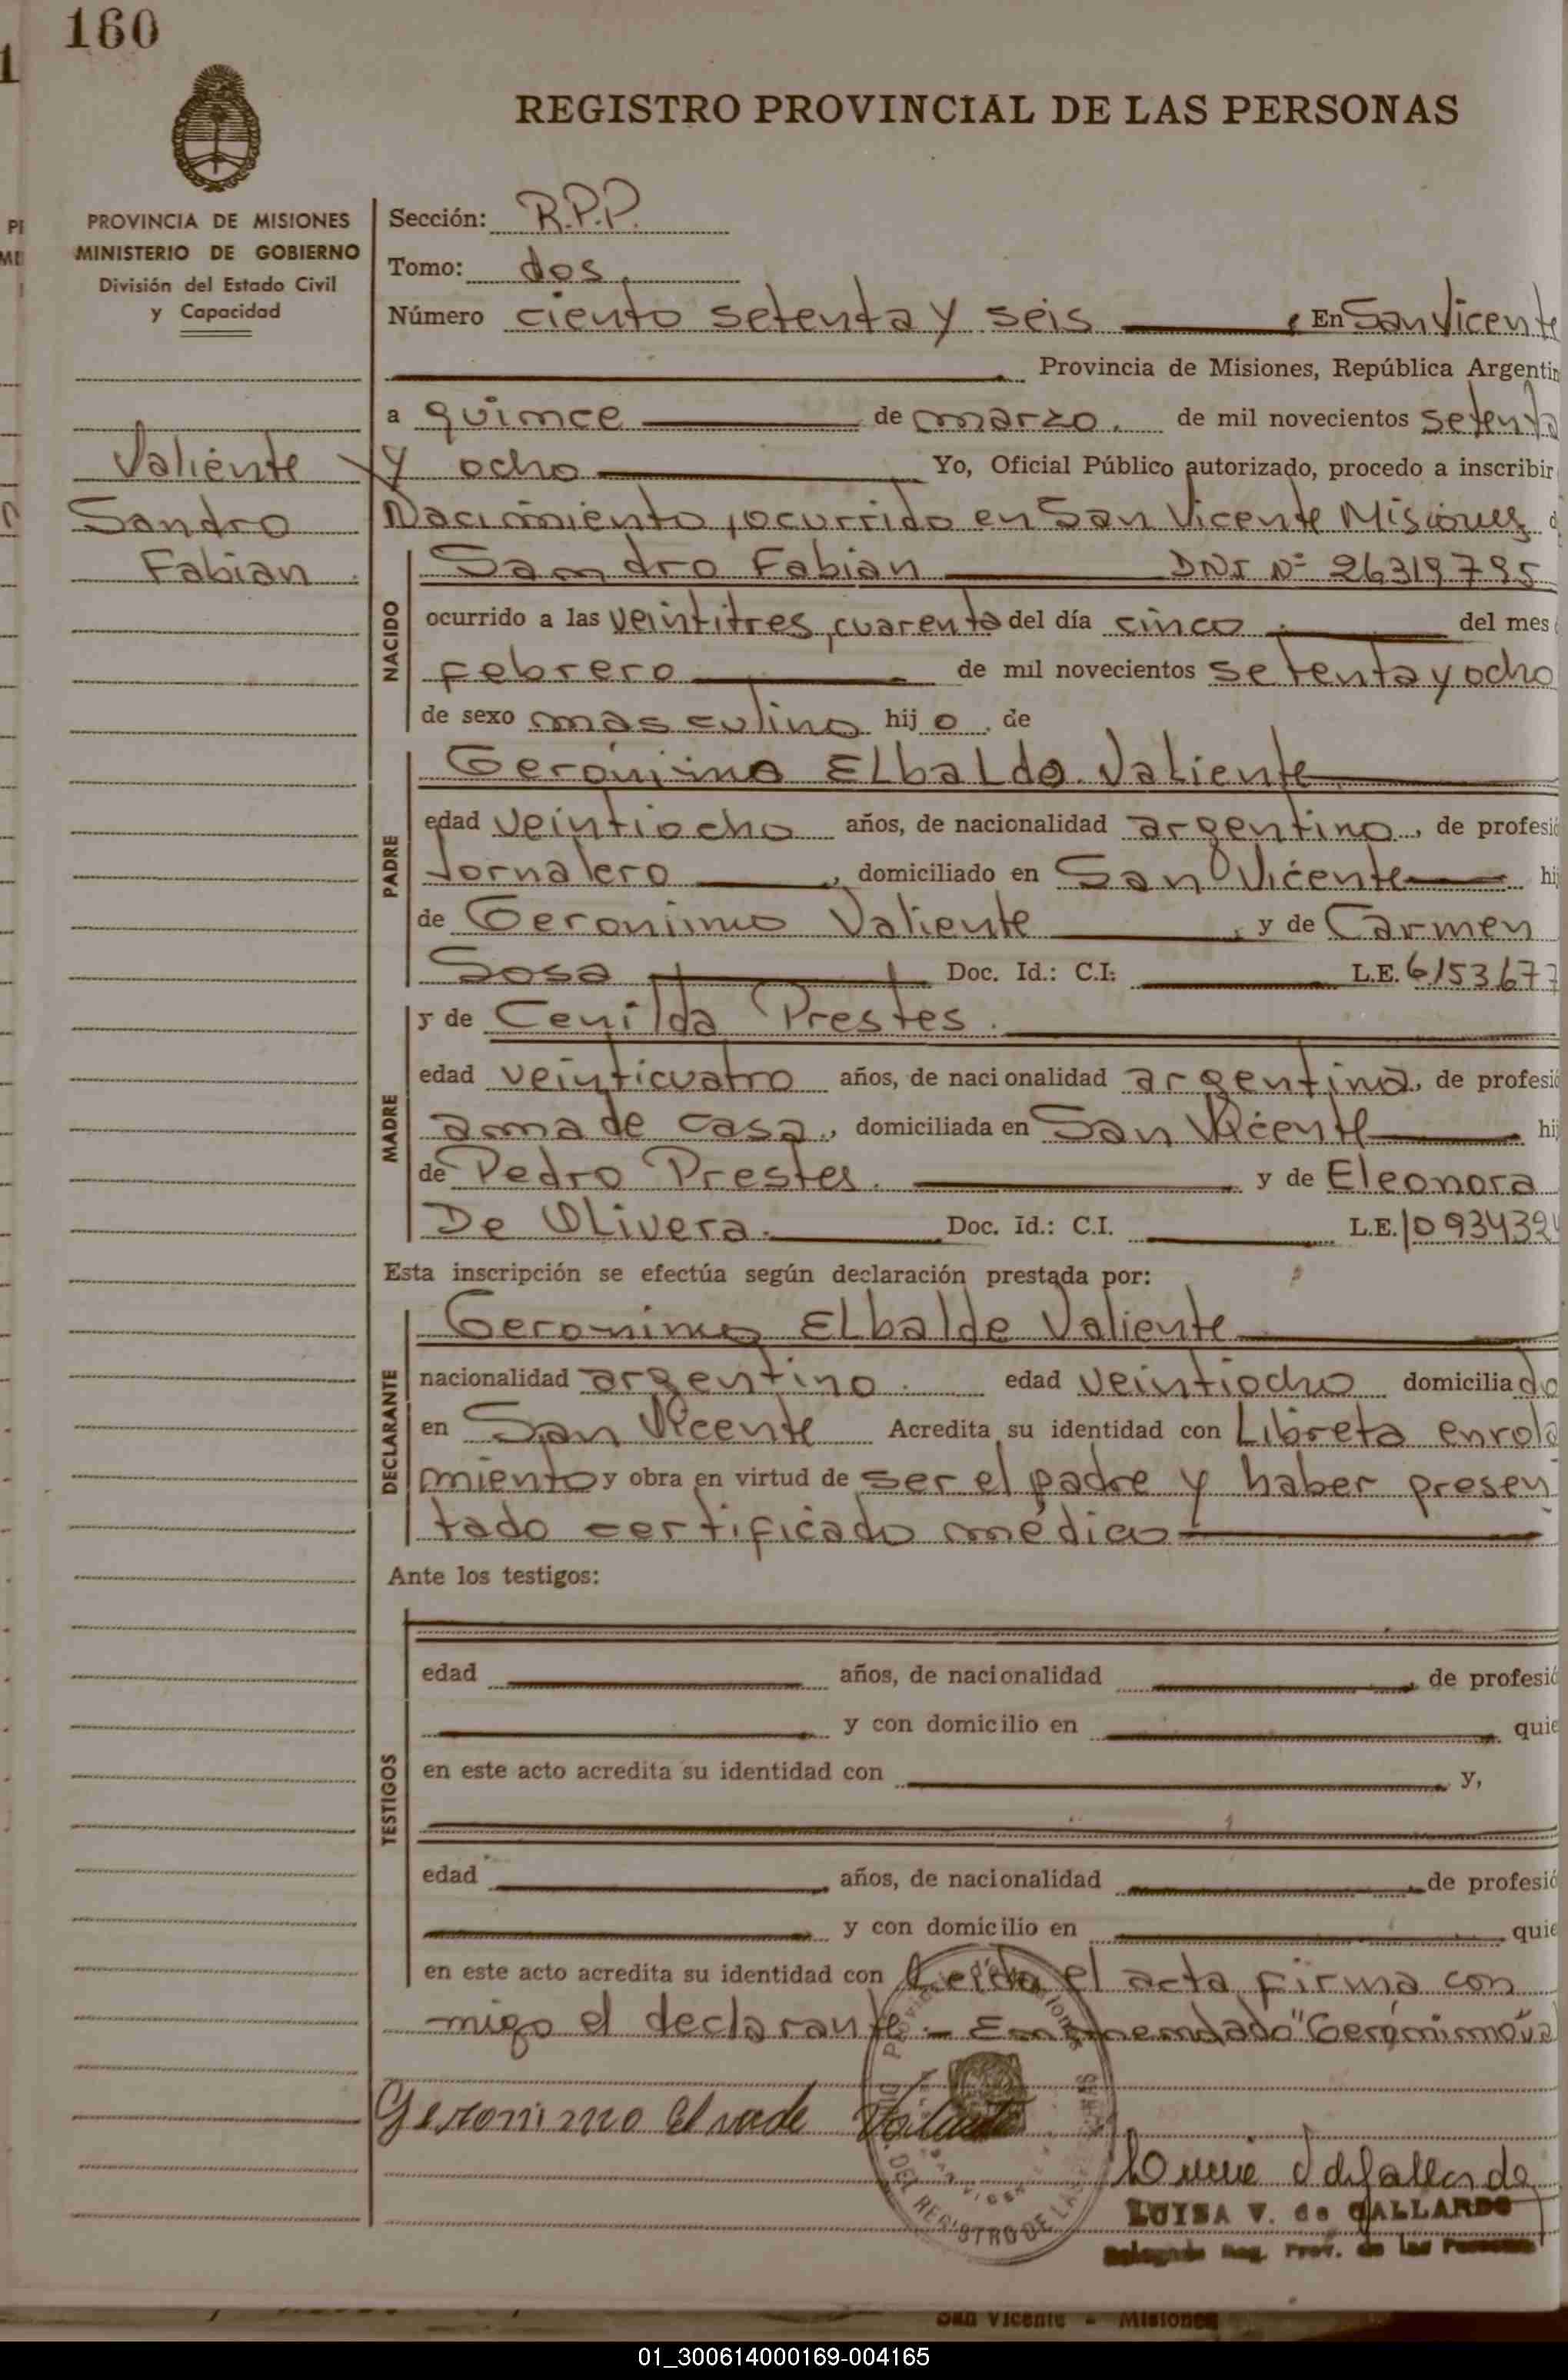 160
REGISTRO PROVINCIAL DE LAS PERSONAS
PROVINCIA DE MISIONES
MINISTERIO DE GOBIERNO
División del Estado Civil
y Capacidad
Valiente
Sandro
Fabian
Sección: R.P.P.
Tomo: dos
Número ciento setenta y seis En San Vicente
Provincia de Misiones, República Argentin
a quince de marzo, de mil novecientos setenta
y ocho Yo, Oficial Público autorizado, procedo a inscribir
Nacimiento, ocurrido en San Vicente Misiones d
NACIDO
Sandro Fabian DNI Nº 26319795
ocurrido a las veintitres, cuarenta del día cinco del mes
febrero de mil novecientos setenta y ocho
de sexo masculino hijo. de
PADRE
Gerónimo Elbaldo Valiente
edad veintiocho años, de nacionalidad argentino, de profesió
Jornalero, domiciliado en San Vicente hi
de Geronimo Valiente, y de Carmen
Sosa Doc. Id.: C.I: L.E. 6153677
MADRE
y de Cenilda Prestes.
edad veinticuatro años, de nacionalidad argentina, de profesió
ama de casa, domiciliada en San Vicente hi
de Pedro Prestes. y de Eleonora
De Olivera. Doc. Id.: C.I. L.E.
Esta inscripción se efectúa según declaración prestada por:
DECLARANTE
Geronimo Elbalde Valiente
nacionalidad argentino. edad veintiocho domiciliado
en San Vicente Acredita su identidad con Libreta enrola
miento y obra en virtud de ser el padre y haber presen
tado certificado médico
Ante los testigos:
TESTIGOS
edad años, de nacionalidad , de profesió
y con domicilio en quie
en este acto acredita su identidad con y,
edad , años, de nacionalidad de profesió
y con domicilio en quie
en este acto acredita su identidad con Leida el acta firma con
migo el declarante.- Enmendado "Gerónimo" va
Geronimo Elvade Valiente
DEL REGISTRO DE LAS
LUISA V. de GALLARDO
Delegada Reg. Prov. de las Personas
San Vicente - Misiones
01_300614000169-004165